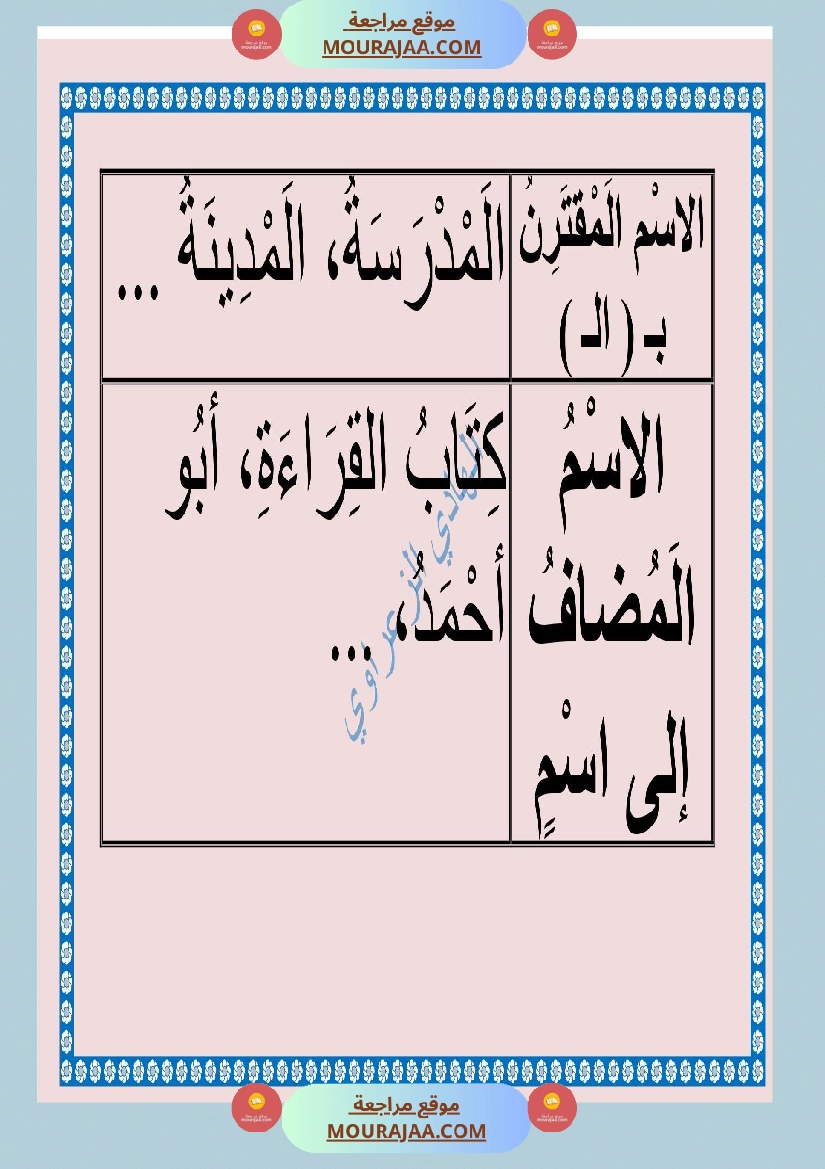 موقع مراجعة
MOURAJAA.COM
الاسْم الَمْقتَرِنُ
بـ ( الـ )
الَمْدْرَسَةُ، الَمْدِينَةُ ...
الاسْمُ
الَمُضافُ
إلى اسْمٍ
كِتَابُ القِرَاءَةِ، أبُو
أحْمَدُ، ...
الهادي الزعراوي
موقع مراجعة
MOURAJAA.COM